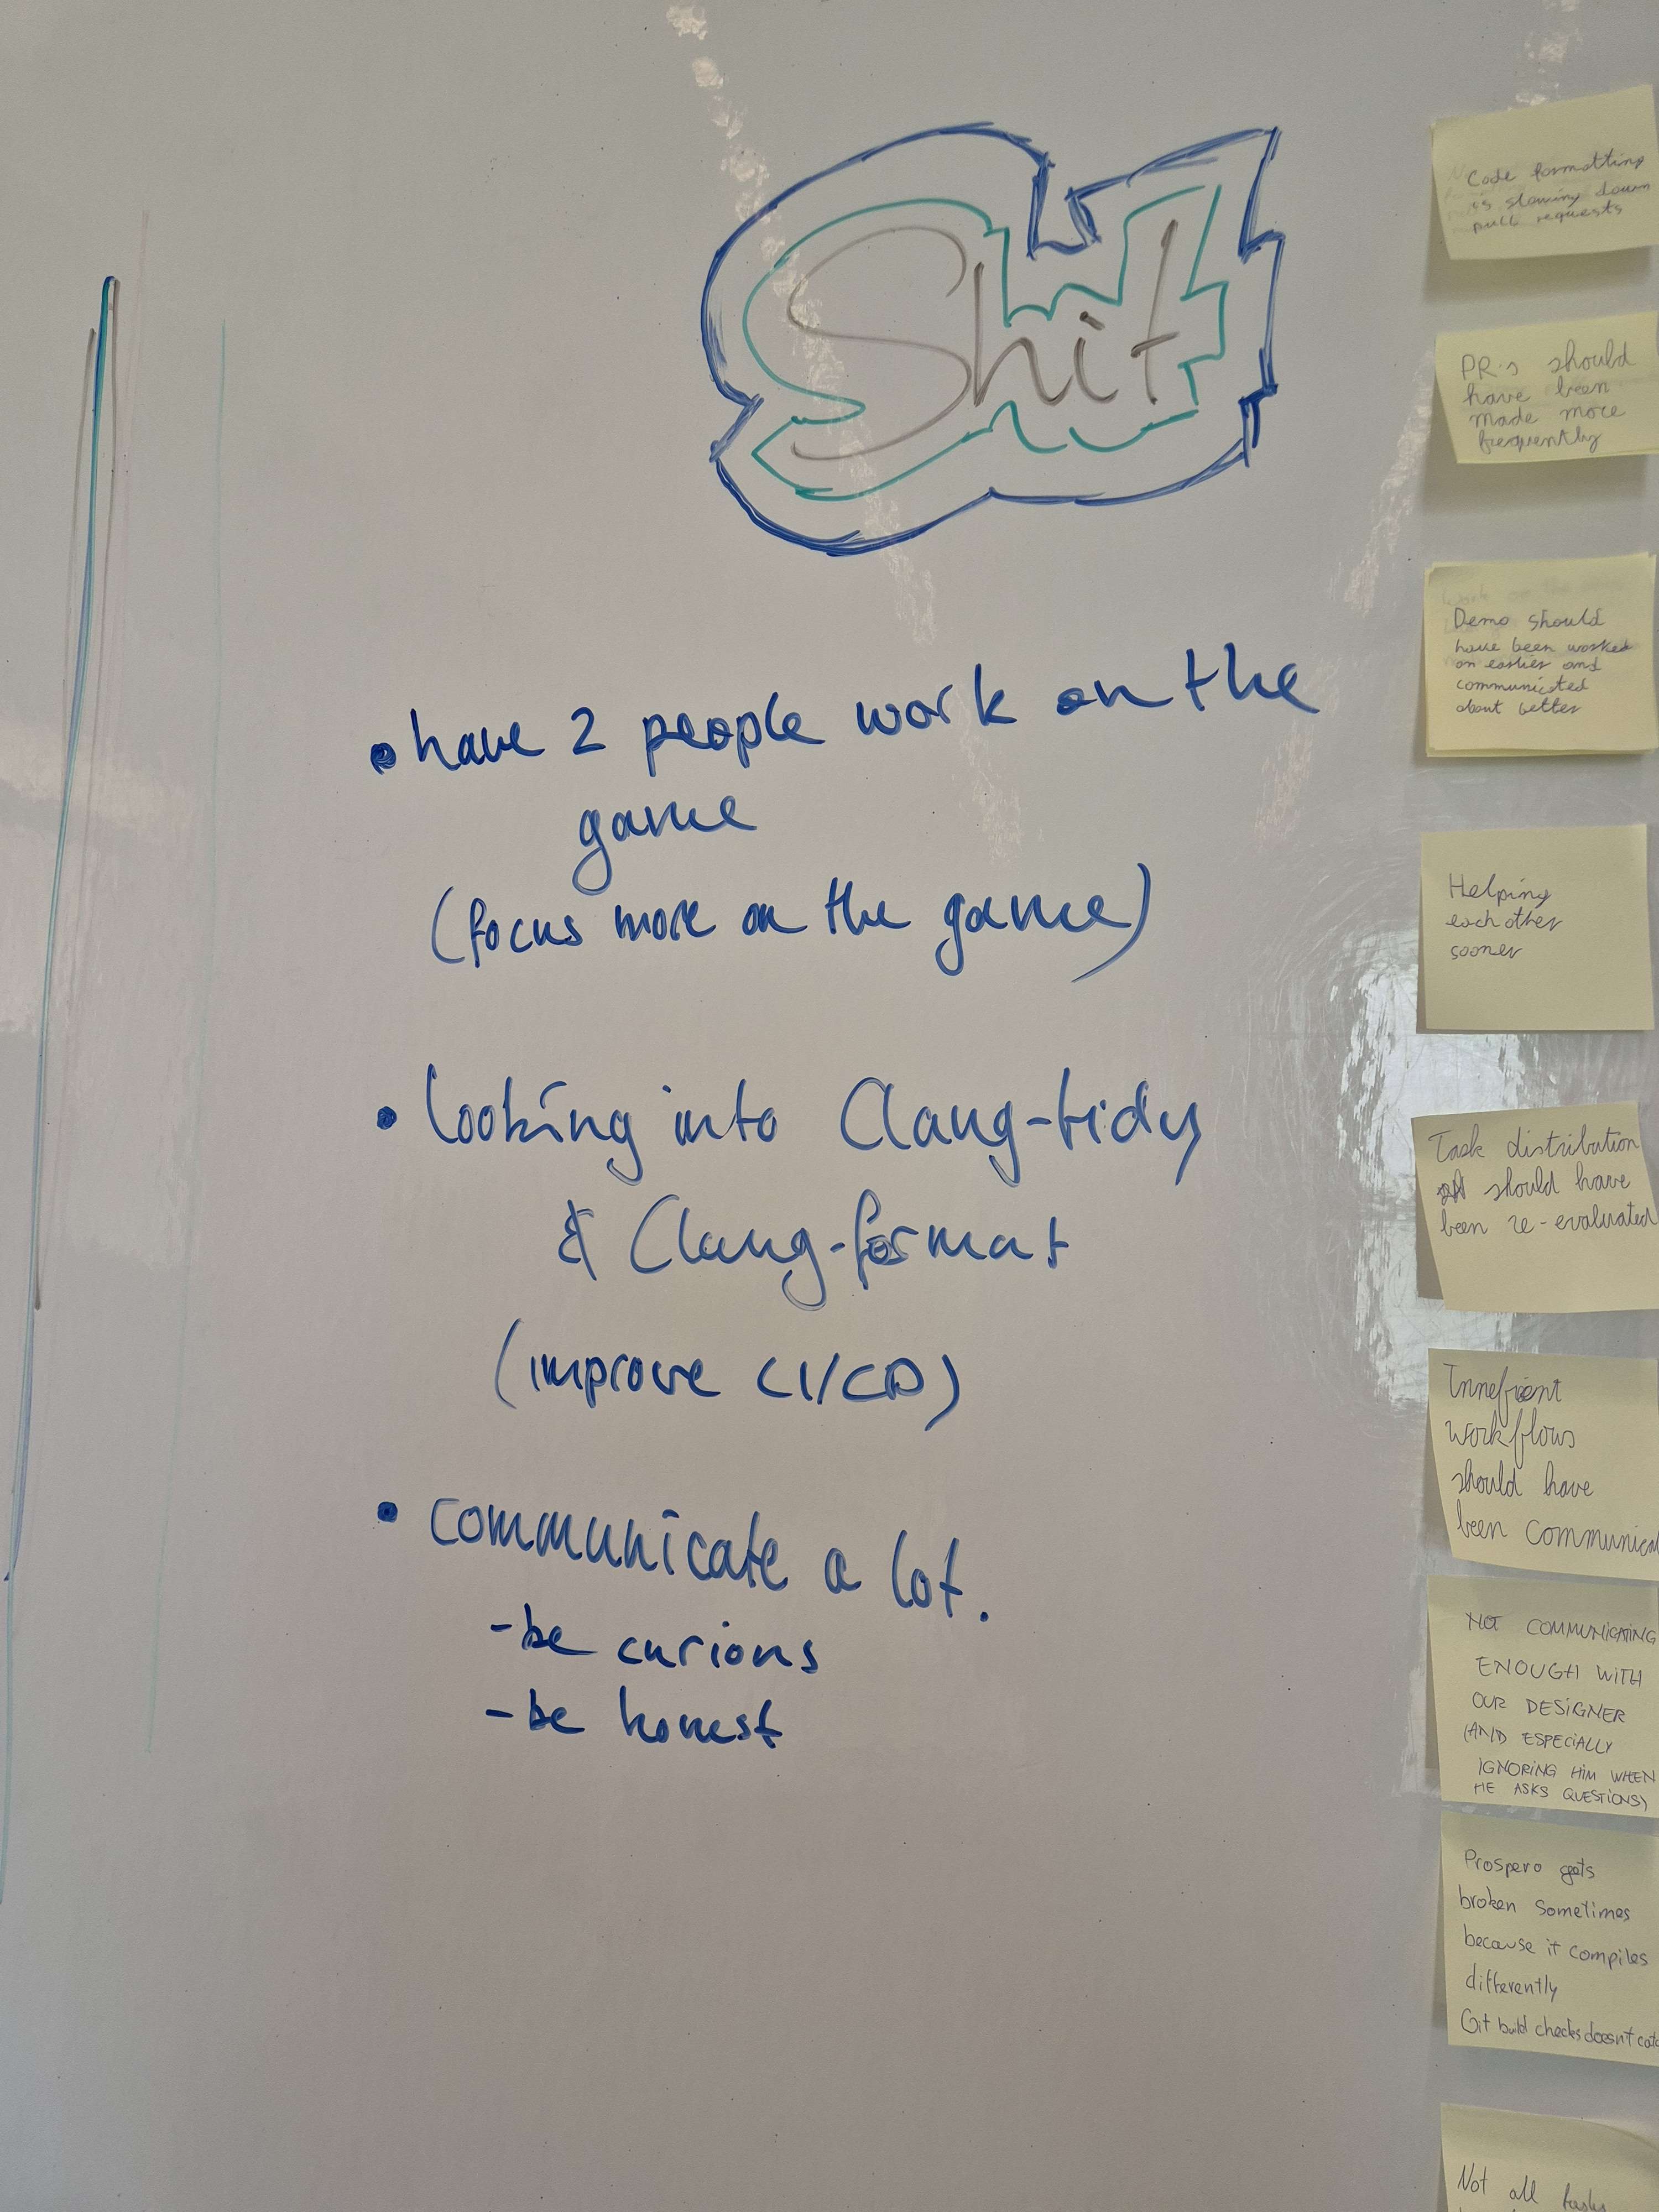 Shit
• have 2 people work on the
game
(focus more on the game)
• looking into Clang-tidy
& Clang-format
(improve CI/CD)
• communicate a lot.
- be curious
- be honest
Code formatting
is slowing down
pull requests
PR's should
have been
made more
frequently
Demo should
have been worked
on earlier and
communicated
about better
Helping
each other
sooner
Task distribution
should have
been re-evaluated
Innefient
workflows
should have
been communica
NOT COMMUNICATING
ENOUGH WITH
OUR DESIGNER
(AND ESPECIALLY
IGNORING HIM WHEN
HE ASKS QUESTIONS)
Prospero gets
broken sometimes
because it compiles
differently
Git build checks doesnt catc
Not all tasks